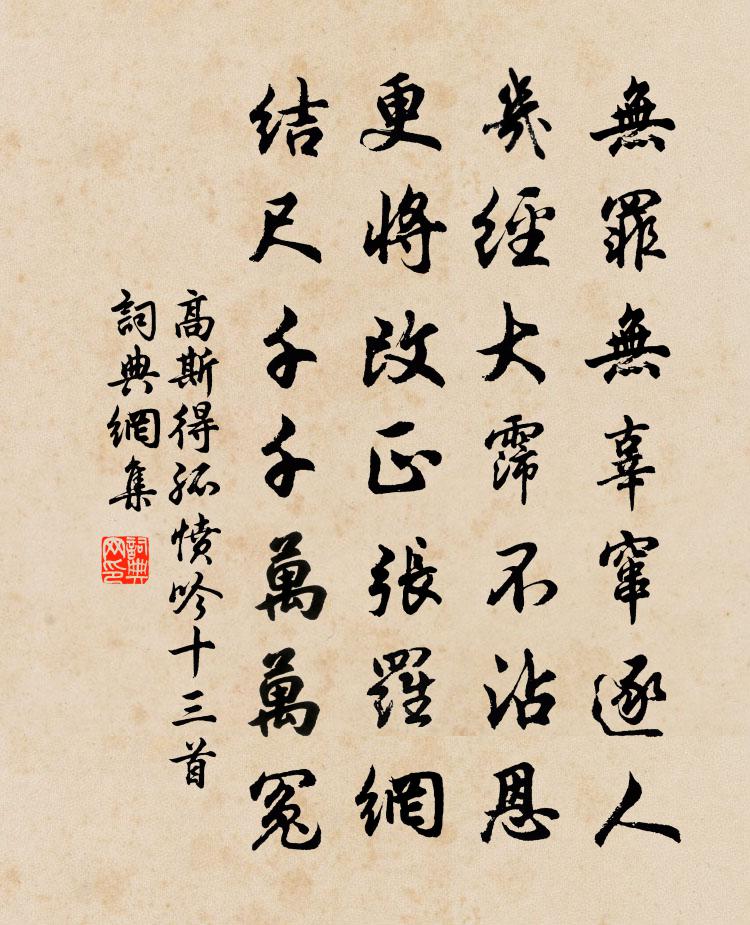 無罪無辜竄逐人
幾經大霈不沾恩
更將改正張羅網
結尺千千萬萬冤
高斯得孤憤吟十三首
詞典網集
詞典网印